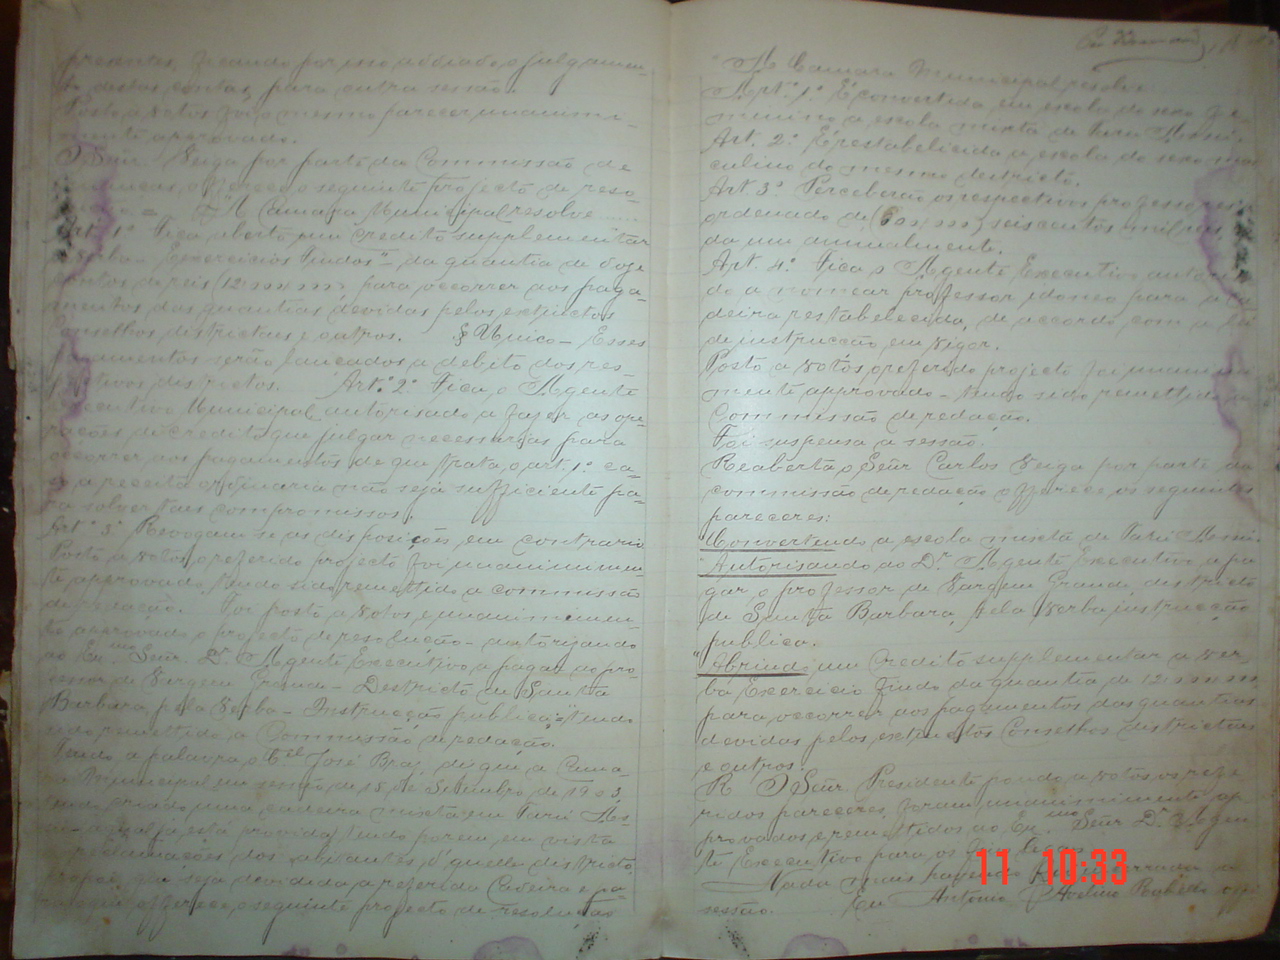 presentes, ficando por isso addiado o julgamen-
to destas contas, para outra sessão.
Posto a votos foi o mesmo parecer unanime-
mente approvado.
O Senr. Veiga por parte da Commissão de
offerece o seguinte projecto de reso-
= "A Camara Municipal resolve
Art. 1º Fica aberto um credito supplementar
verba - Exercicios Findos" - da quantia de doze
contos de reis (12:000$000) para occorrer aos paga-
mentos das quantias devidas pelos extinctos
Conselhos districtaes e outros. § Unico - Esses
pagamentos serão lançados a debito dos res-
pectivos districtos. Art. 2º Fica o Agente
Executivo Municipal autorisado a fazer as ope-
rações de credito que julgar necessarias para
occorrer aos pagamentos de que trata o art. 1º ca-
so a receita ordinaria não seja sufficiente pa-
ra solver taes compromissos.
Art. 3º Revogam-se as disposições em contrario
Posto a votos, o referido projecto foi unanimemen-
te approvado, tendo sido remettido a commissão
de redacção. Foi posto a votos e unanimemen-
te approvado o projecto de resolução - autorizando
ao Exmo. Senr. Dr. Agente Executivo a pagar ao pro-
fessor de Vargem Grande - Destricto de Santa
Barbara, pela verba - Instrucção publica - tendo
sido remettido a Commissão de redacção.
Tendo a palavra o Cel José Braz, diz que a Cama-
ra Municipal em sessão de 15 de Setembro de 1903,
tendo criado uma cadeira mixta em Taru As-
a qual já está provida, tendo porem em vista
reclamações dos abitantes d'quelle districto,
propõe que seja devidida a referida Cadeira e pa-
ra que offerece o seguinte projecto de resolução
"A Camara Municipal resolve
Art. 1º É convertida em escola do sexo fe-
menino a escola mixta de Taru
Art. 2º É restabelicida a escola do sexo mas-
culino do mesmo destricto.
Art. 3º Perceberão os respectivos professores o
ordenado de (600$000) seiscentos mil reis
da um annualmente.
Art. 4º Fica o Agente Executivo autori-
do a nomear professor idoneo para a ca-
deira restabelecida, de accordo com a lei
de instrucção em vigor.
Posto a votos, o referido projecto foi unanime-
mente approvado - tendo sido remettido a
Commissão de redacção.
Foi suspensa a sessão.
Reaberta, o Señr Carlos Veiga por parte da
commissão de redacção offerece os seguintes
pareceres:
Convertendo a escola mixta de Taru
"Autorisando ao Dr. Agente Executivo a pa-
gar o professor de Vargem Grande, districto
de Santa Barbara, pela verba, instrucção
publica.
"Abrindo um Credito supplementar a ver-
ba Exercicio findo da quantia de 12:000$000,
para occorrer aos pagamentos das quantias
devidas pelos extinctos Conselhos districtaes
e outros.
R O Señr. Presidente pondo a votos os refe-
ridos pareceres, foram unanimimente ap-
provados e remettidos ao Exmo. Señr Dr. Agen-
te Executivo para os fins legaes.
Nada mais havendo foi encerrada a
sessão. Eu Antonio Avelino Rabello
11 10:33